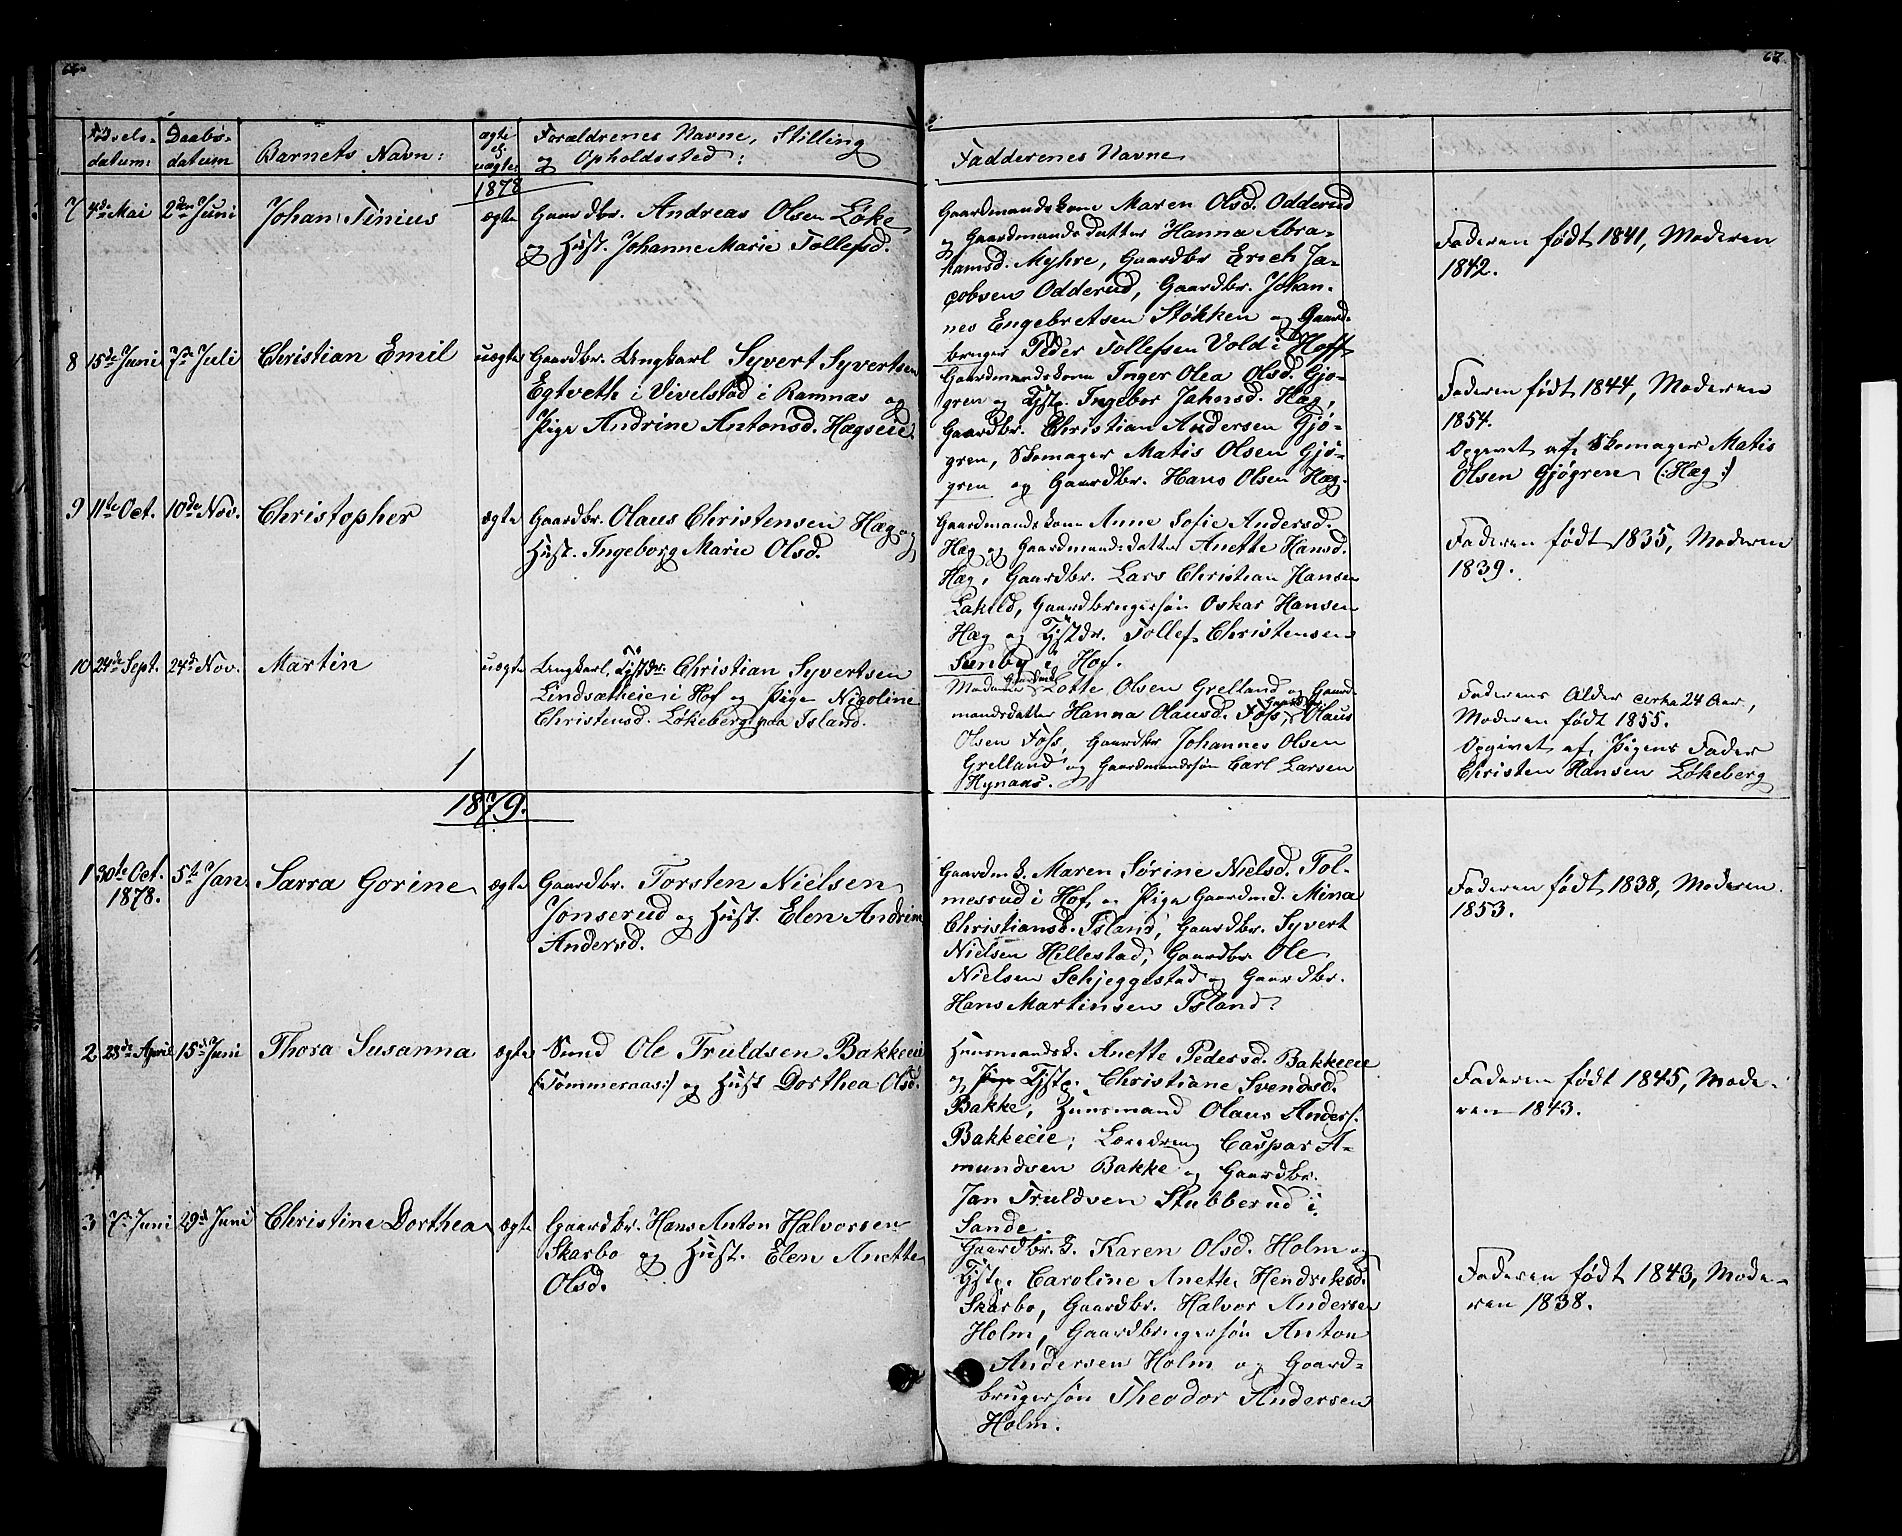 66.
Fødsels-
datum:
Daabs-
datum
Barnets Navn:
ægte
el.
uægte:
Forældrenes Navne, Stilling
og Opholdssted:
1878
7 4de Mai 2den Juni Johan Tinius ægte Gaardbr. Andreas Olsen Løke
og Hust. Johanne Marie Tollefsd.
8 15de Juni 7de Juli Christian Emil uægte Gaardbr. Ungkarl Syvert Syvertsen
Egtveth i Vivelstad i Ramnæs og
Pige Andrine Antonsd. Hægseie.
9 11te Oct. 10de Nov. Christopher ægte Gaardbr. Olaus Christensen Hæg og
Hust. Ingeborg Marie Olsd.
10 24de Sept. 24de Nov. Martin uægte Ungkarl, Tjstdr. Christian Syvertsen
Lindsætheie i Hof og Pige Nicoline
Christensd. Løkeberg paa Island.
1
1879.
1 30te Oct. 5te Jan. Sarra Gorine ægte Gaardbr. Torsten Nielsen
1878. Jonserud og Hust. Elen Andrine
Andersd.
2 23de April 15de Juni Thora Susanna ægte Smed Ole Truldsen Bakkeeie
(:Tømmeraas:) og Hust Dorthea Olsd.
3 7de Juni 29de Juni Christine Dorthea ægte Gaardbr. Hans Anton Halvorsen
Skarbo og Hust. Elen Anette
Olsd.
67.
Faddernes Navne
Gaardmandskone Maren Olsd. Odderud
og Gaardmandsdatter Hanna Abra-
hamsd. Myhre, Gaardbr Erich Ja-
cobsen Odderud, Gaardbr. Johan-
nes Engebretsen Støkken og Gaard-
bruger Peder Tollefsen Vold i Hoff
Gaardmandskone Inger Olea Olsd. Gjø-
gren og Tjstp. Ingebor Jahnsd. Hæg,
Gaardbr. Christian Andersen Gjø-
gren, Skomager Matis Olsen Gjø-
gren og Gaardbr. Hans Olsen Hæg.
Gaardmandskone Anne Sofie Andersd.
Hæg og Gaardmandsdatter Anette Hansd.
Hæg, Gaardbr. Lars Christian Hansen
Lakild, Gaardbrugersøn Oskar Hansen
Hæg og Tjstdr. Tollef Christensen
Sunby i Hof.
Lotte Olsen Grelland og Gaard-
mandsdatter Hanna Olausd. Foss, Gaardbr. Olaus
Olsen Foss, Gaardbr Johannes Olsen
Grelland og Gaardmandssøn Carl Larsen
Hynaas.
Gaardm k. Maren Sørine Nielsd. Tol-
mesrud i Hof, og Pige Gaardmd. Mina
Christiansd. Island, Gaardbr. Syvert
Nielsen Hillestad, Gaardbr Ole
Nielsen Schjeggestad og Gaardbr.
Hans Martinsen Island.
Huusmandsk. Anette Pedersd. Bakkeeie
og Pige Tjstp. Christiane Svendsd.
Bakke, Huusmand Olaus Anders.
Bakkeeie, Læredreng Caspar A-
mundsen Bakke og Gaardbr.
Jan Truldsen Stubberud i
Sande.
Gaardbr. k. Karen Olsd. Holm og
Tjstp. Caroline Anette Hendriksd.
Skarbo, Gaardbr. Halvor Andersen
Holm, Gaardbrugersøn Anton
Andersen Holm og Gaard-
brugersøn Theodor Andersen
Holm.
Faderen født 1841, Moderen
1842.
Faderen født 1844, Moderen
1854.
Opgivet af Skomager Matis
Olsen Gjøgren (:Hæg:)
Faderen født 1835, Moderen
1839.
Faderens Alder cirka 24 Aar,
Moderen født 1855.
Opgivet af Pigens Fader
Christen Hansen Løkeberg
Faderen født 1838, Moderen
1853.
Faderen født 1845, Mode-
ren 1843.
Faderen født 1843, Mode-
ren 1838.